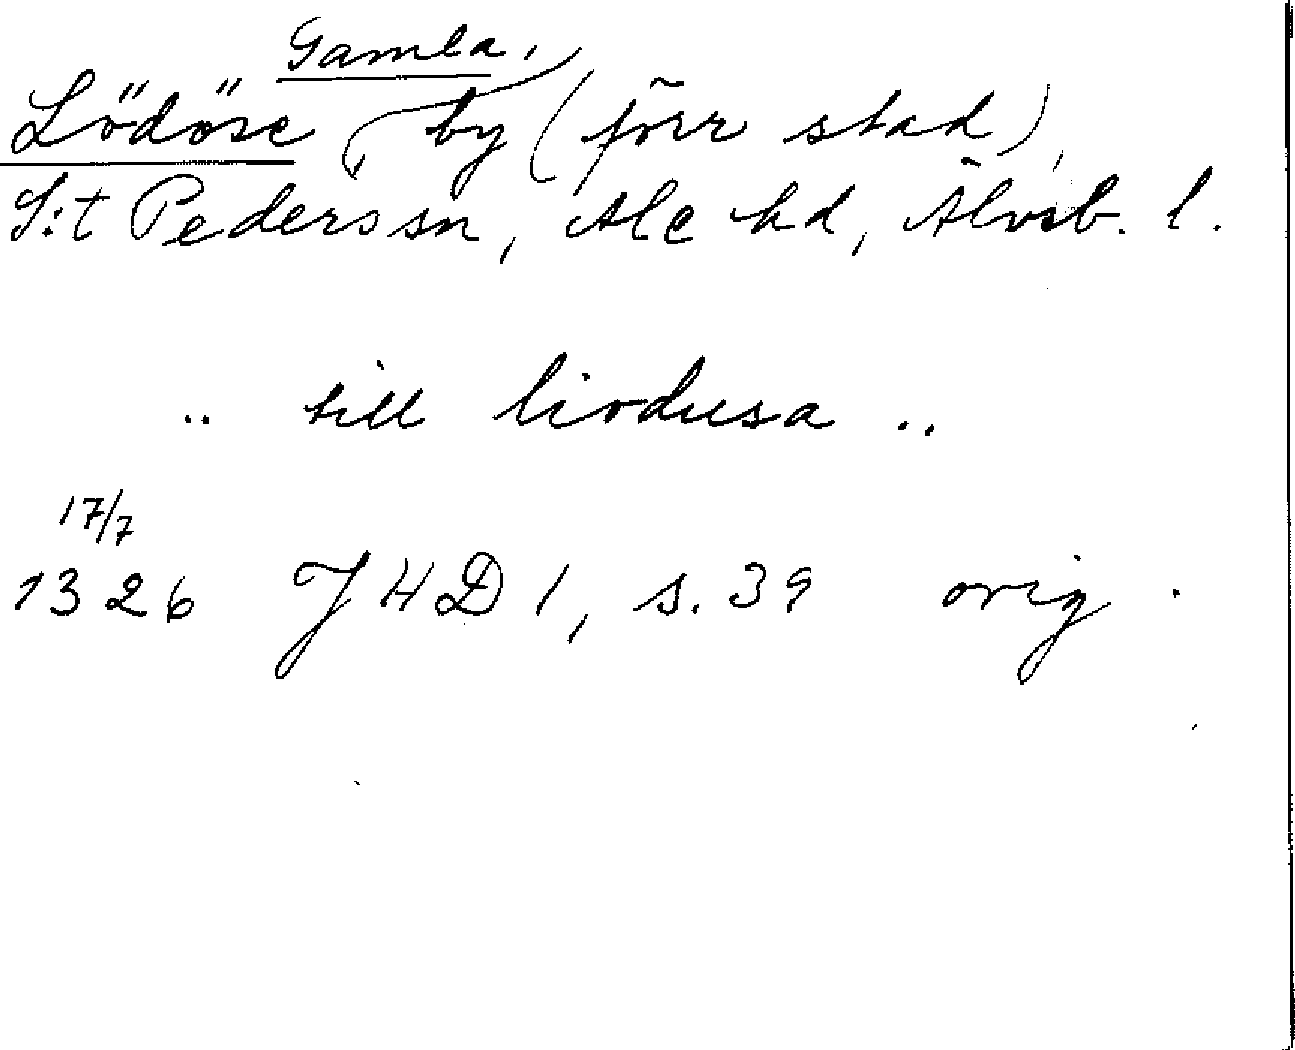 Gamla,
Lödöse, by (förr stad),
S:t Peders sn, Ale hd, Älvsb. l.
.. till liodusa ..
17/7
1326 JHD 1, s. 39 orig.